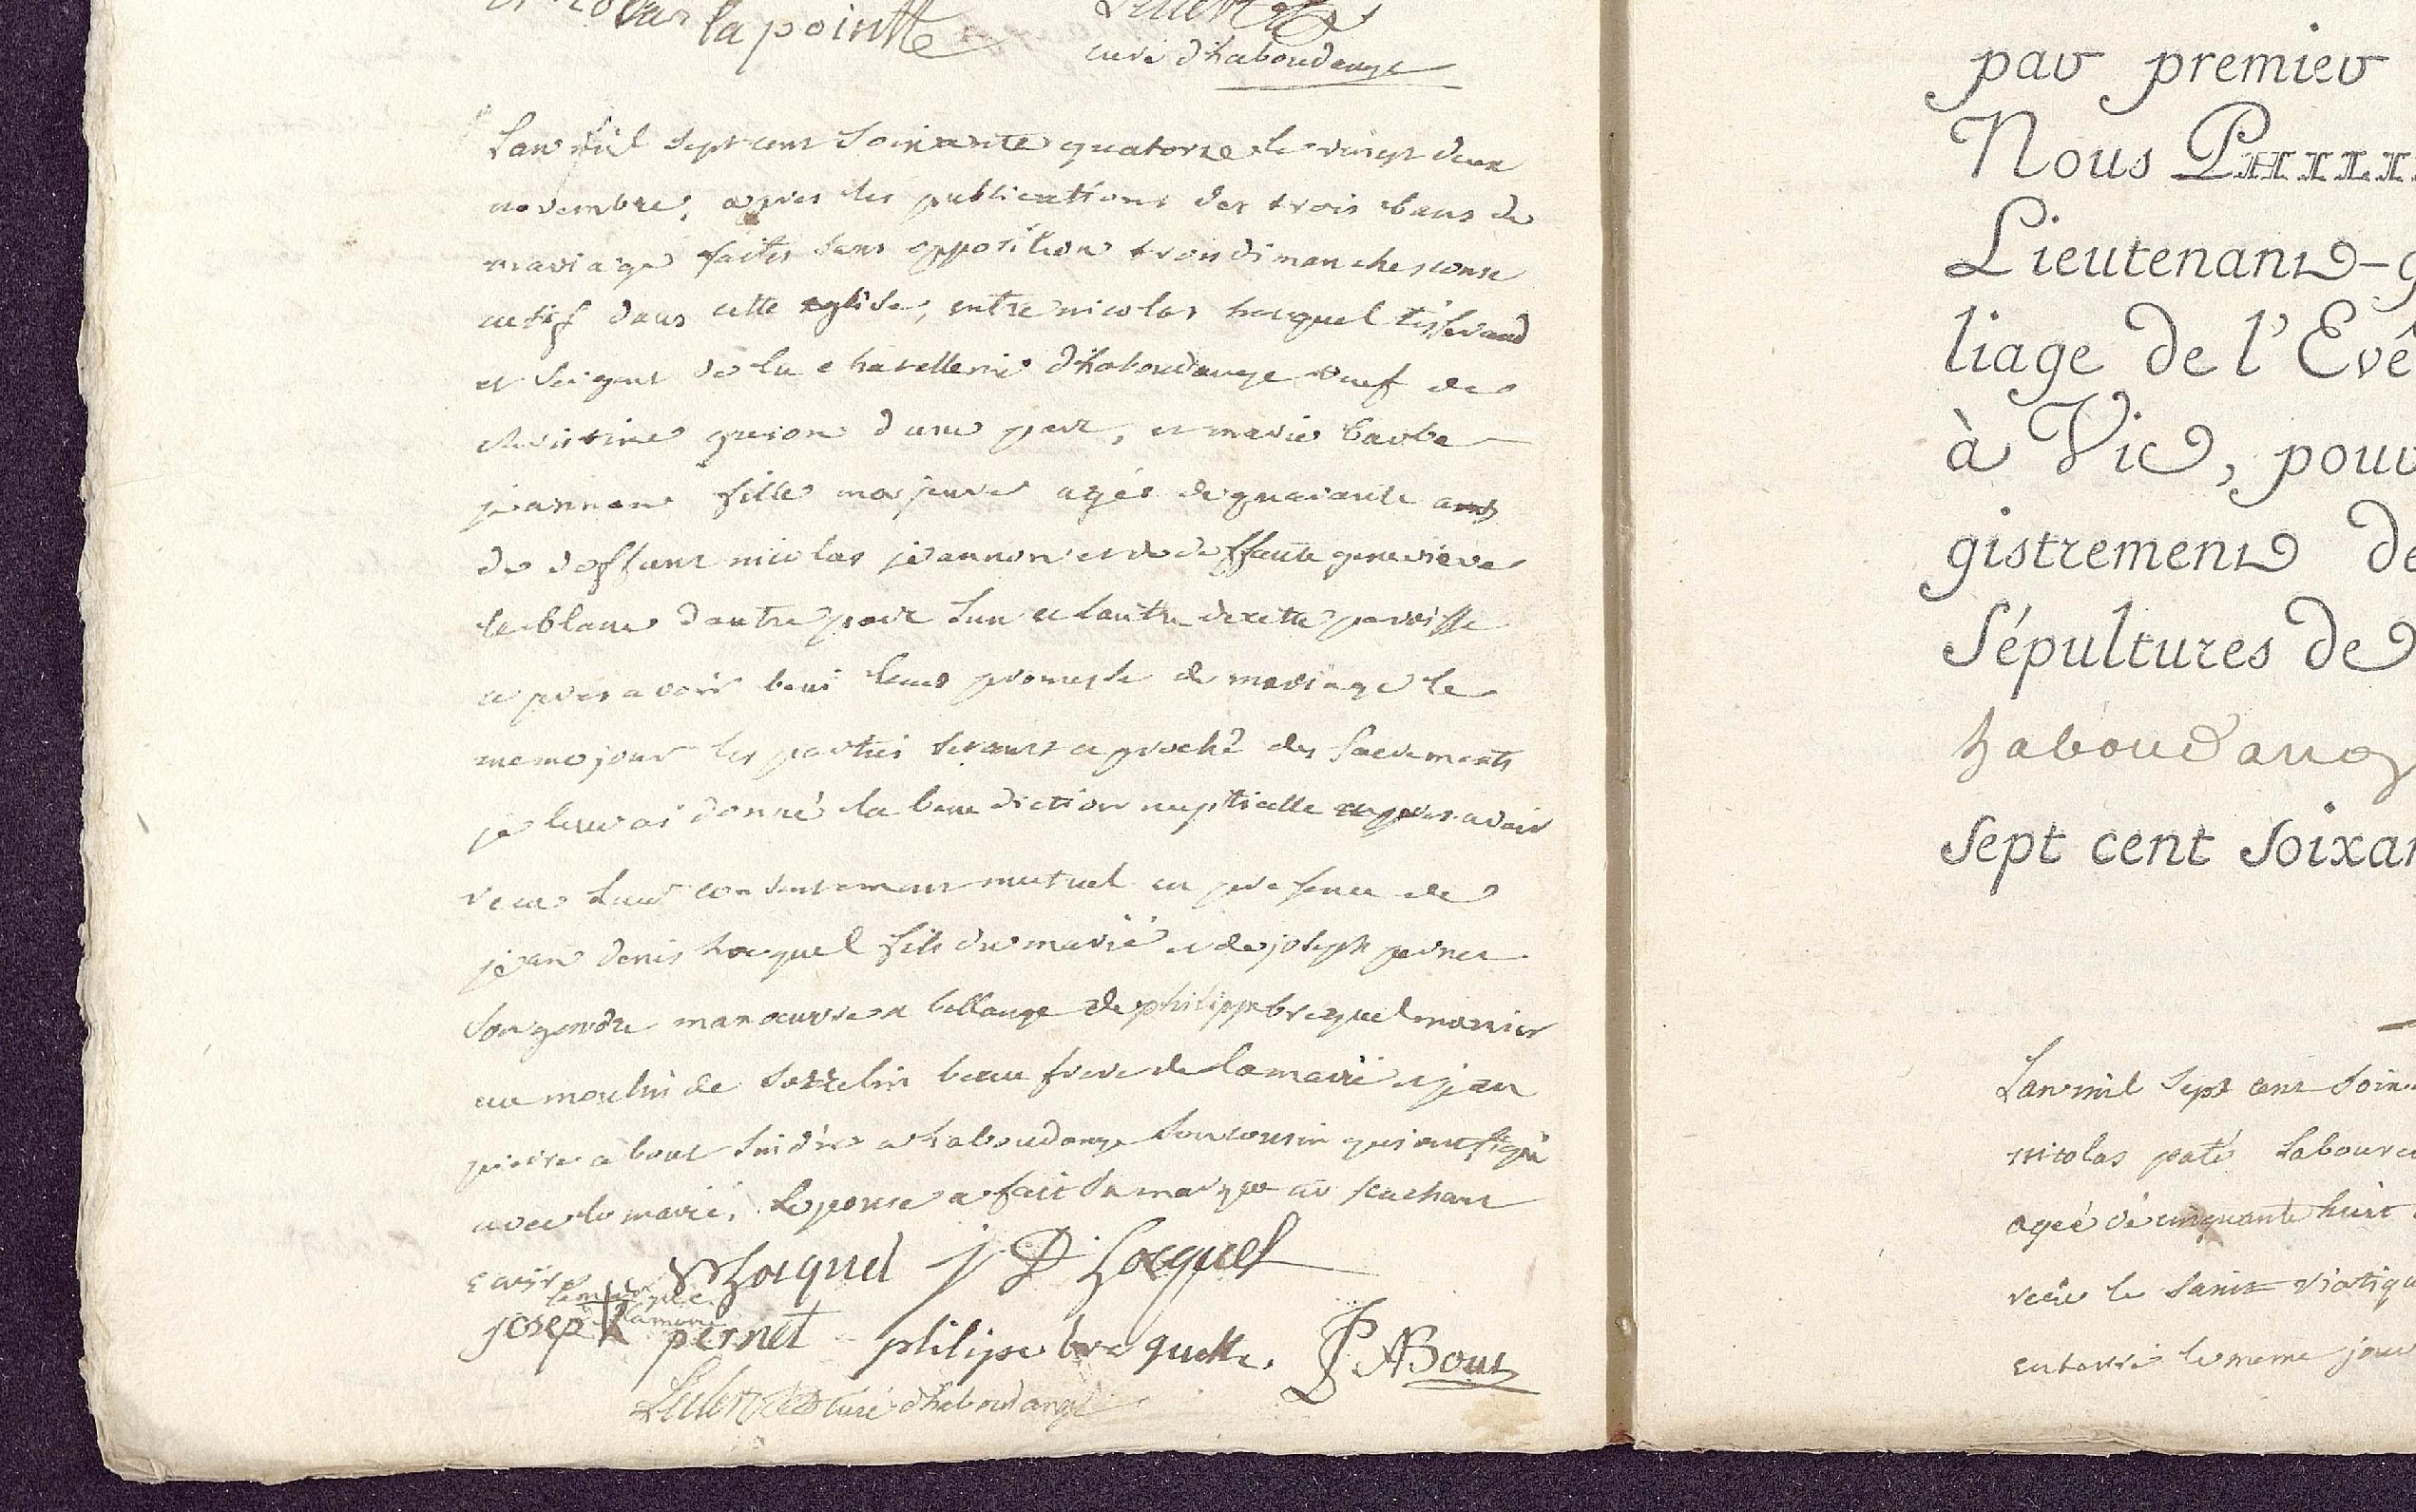 la pointte
curé dhaboudange
Lan mil sept cent soixante quatorze le vingt deux
novembre, apres les publications des trois bans de
mariage faites sans opposition trois dimanches conse
cutif dans cette eglise, entre nicolas hocquel tisserand
et sergent de la chatellenie dhaboudange veuf de
christine d'une part, et marie barbe
jeannon fille majeure agée de quarante ans
de deffunt nicolas jeannon et de deffunte genevieve
leblanc dautre part lun et lautre de cette paroisse
apres avoir beni leur promesse de mariage le
meme jour les parties setant aproché des sacrements
je leur ai donné la benediction nuptialle apres avoir
recu leur consentement mutuel en presence de
jean denis hocquel fils du marié et de joseph pernet
son gendre manoeuvre a bellange de philippe brequel monier
au moulin de beau frere de la marié et jean
pierre about a haboudange son cousin qui ont signé
avec le marié, lepouse a fait sa marque ne scachant
ecrire
N hocquel j D hocquel
la marque
de la mariée
joseph pernet philipe brequette. JP ABout
curé dhaboudange
par premier
Nous PHILI
Lieutenant-g
liage de l'Evê
à Vic, pour
gistrement de
Sépultures de
haboudang
sept cent soixan
Lan mil sept cent soix
nicolas paté laboureu
ageé de cinquante huit
recu le saint viatiqu
enterré le meme jour